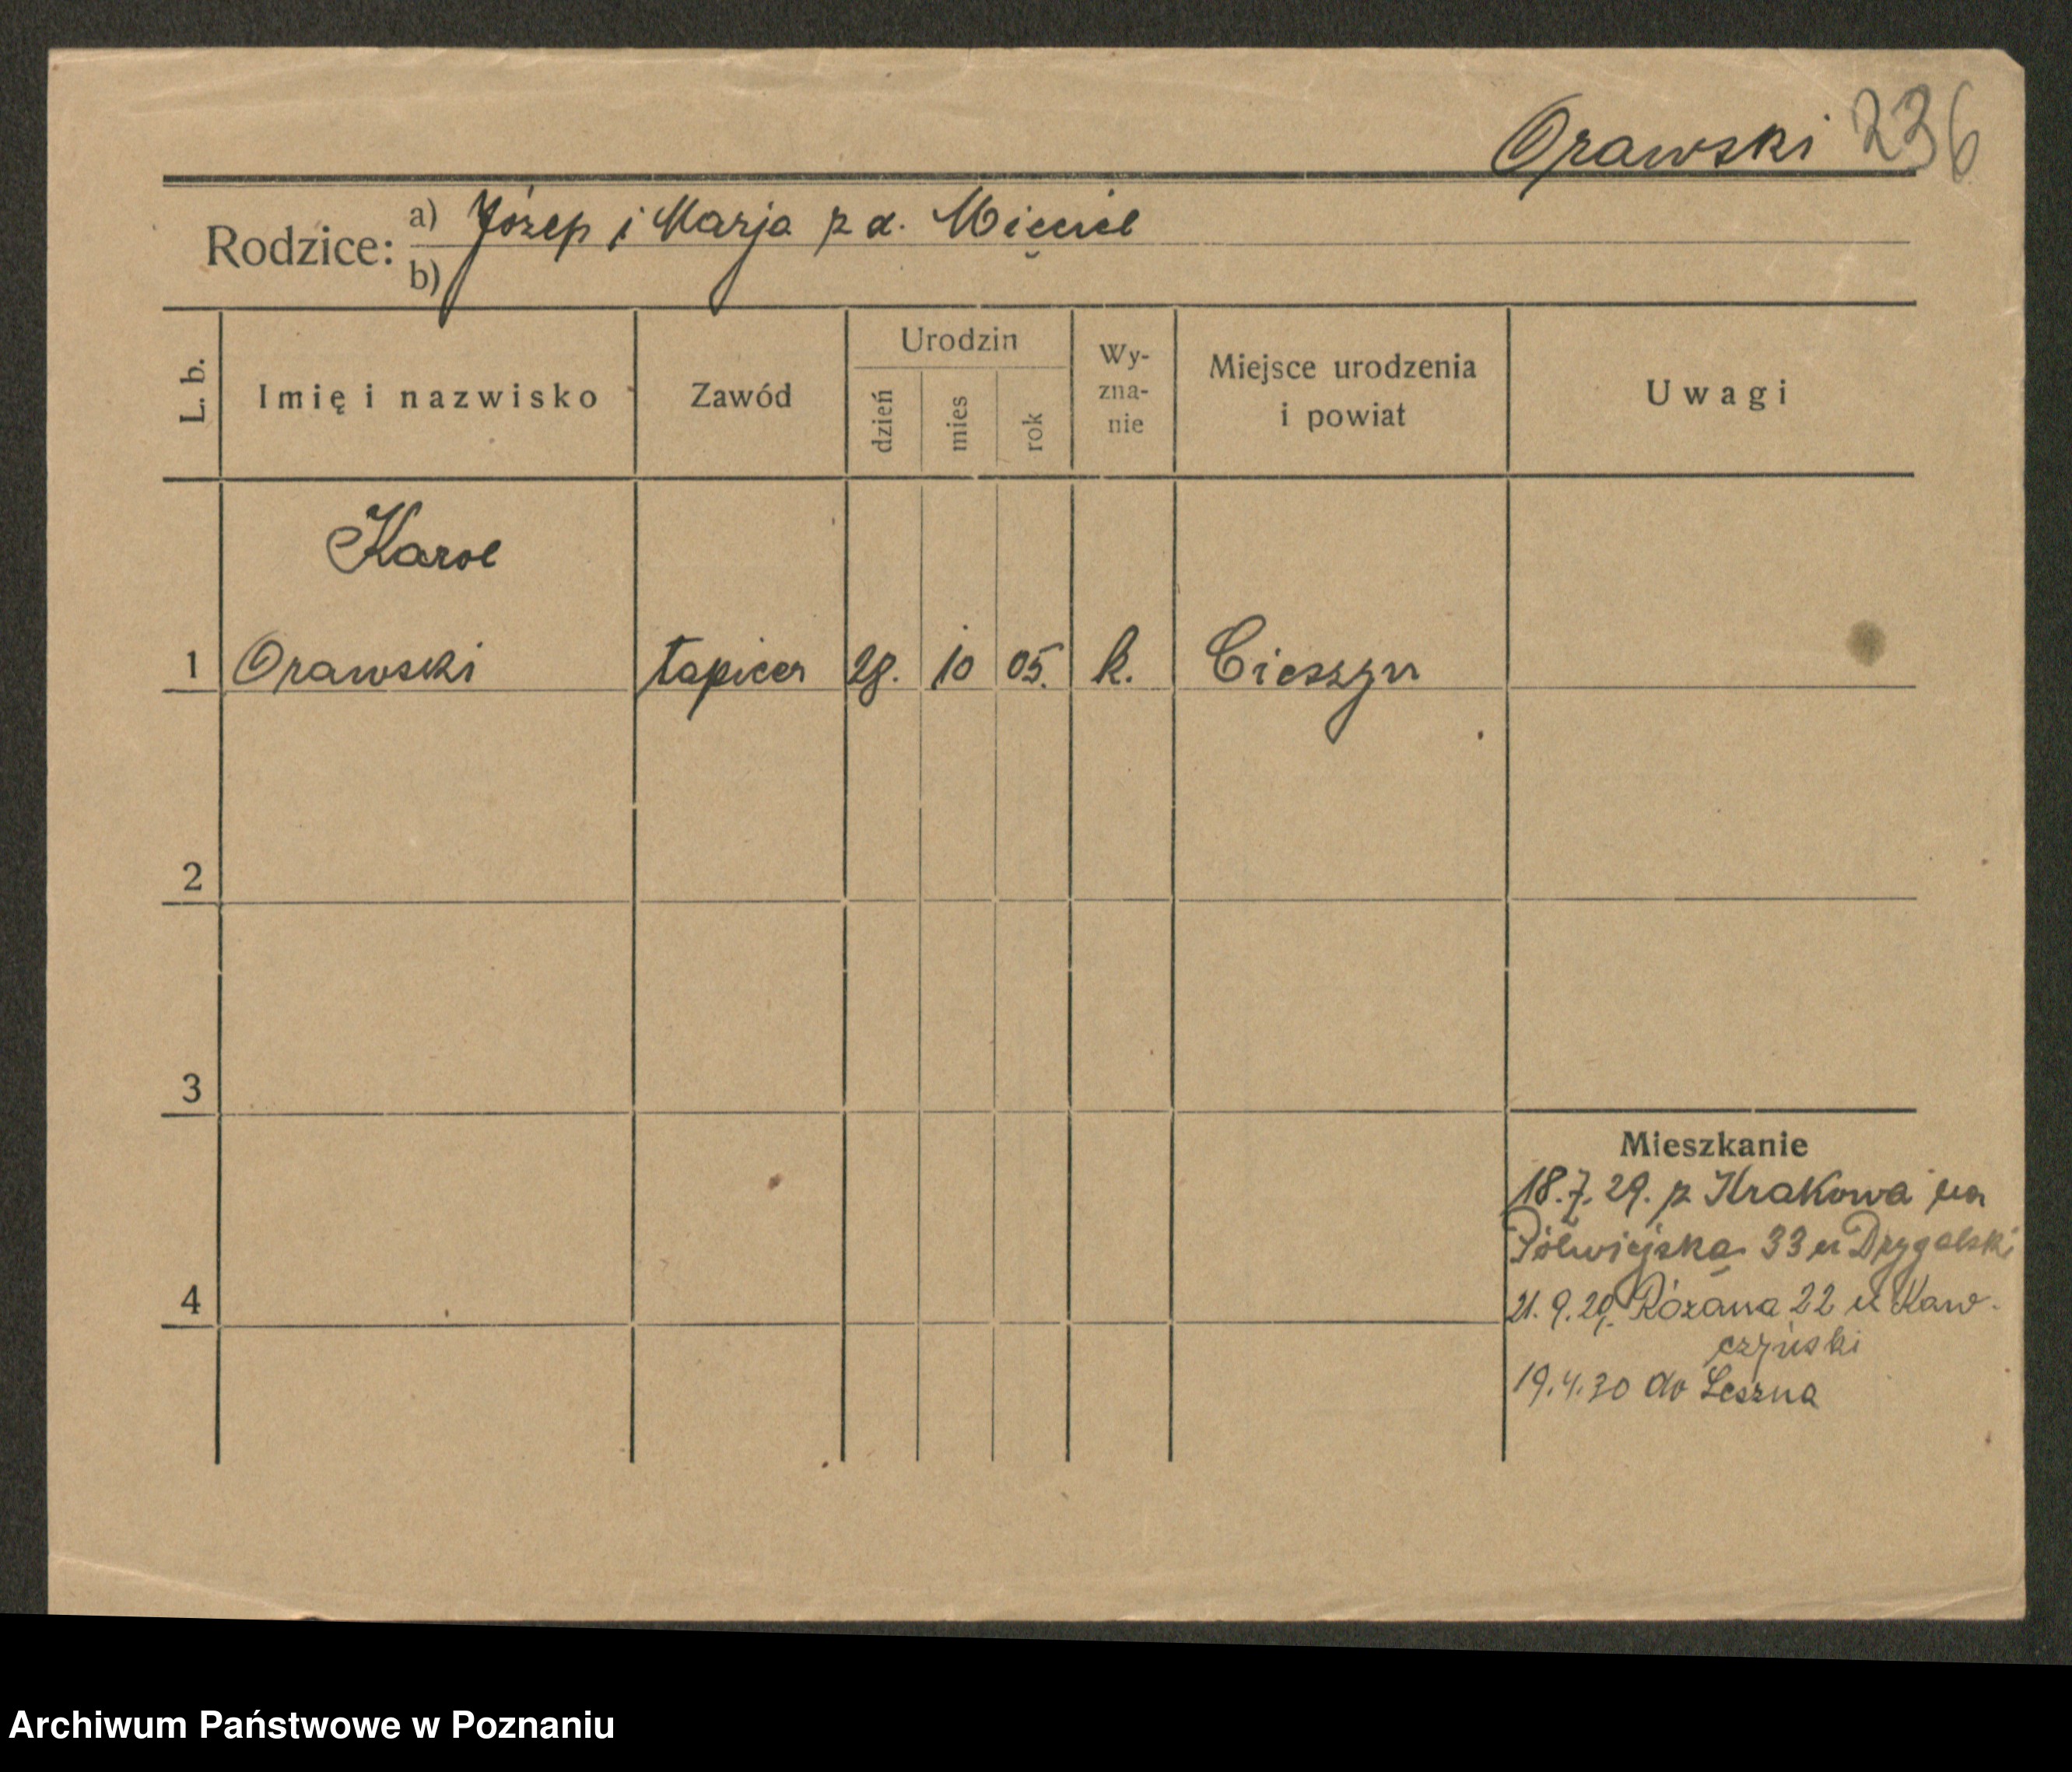 Orawski 236
Rodzice: a) Józep i Marja z d. Mięciel
b)
L. b. Imię i nazwisko Zawód Urodzin dzień mies rok Wy-zna-nie Miejsce urodzenia i powiat Uwagi
Karol
1 Orawski tapicer 28. 10 05. k. Cieszyn
2
3
Mieszkanie
18.7.29. z Krakowa na
Półwiejską 33 u Drygalski
4
21.9.29. Różana 22 u Kaw-
czyński
19.4.30 do Leszna
Archiwum Państwowe w Poznaniu